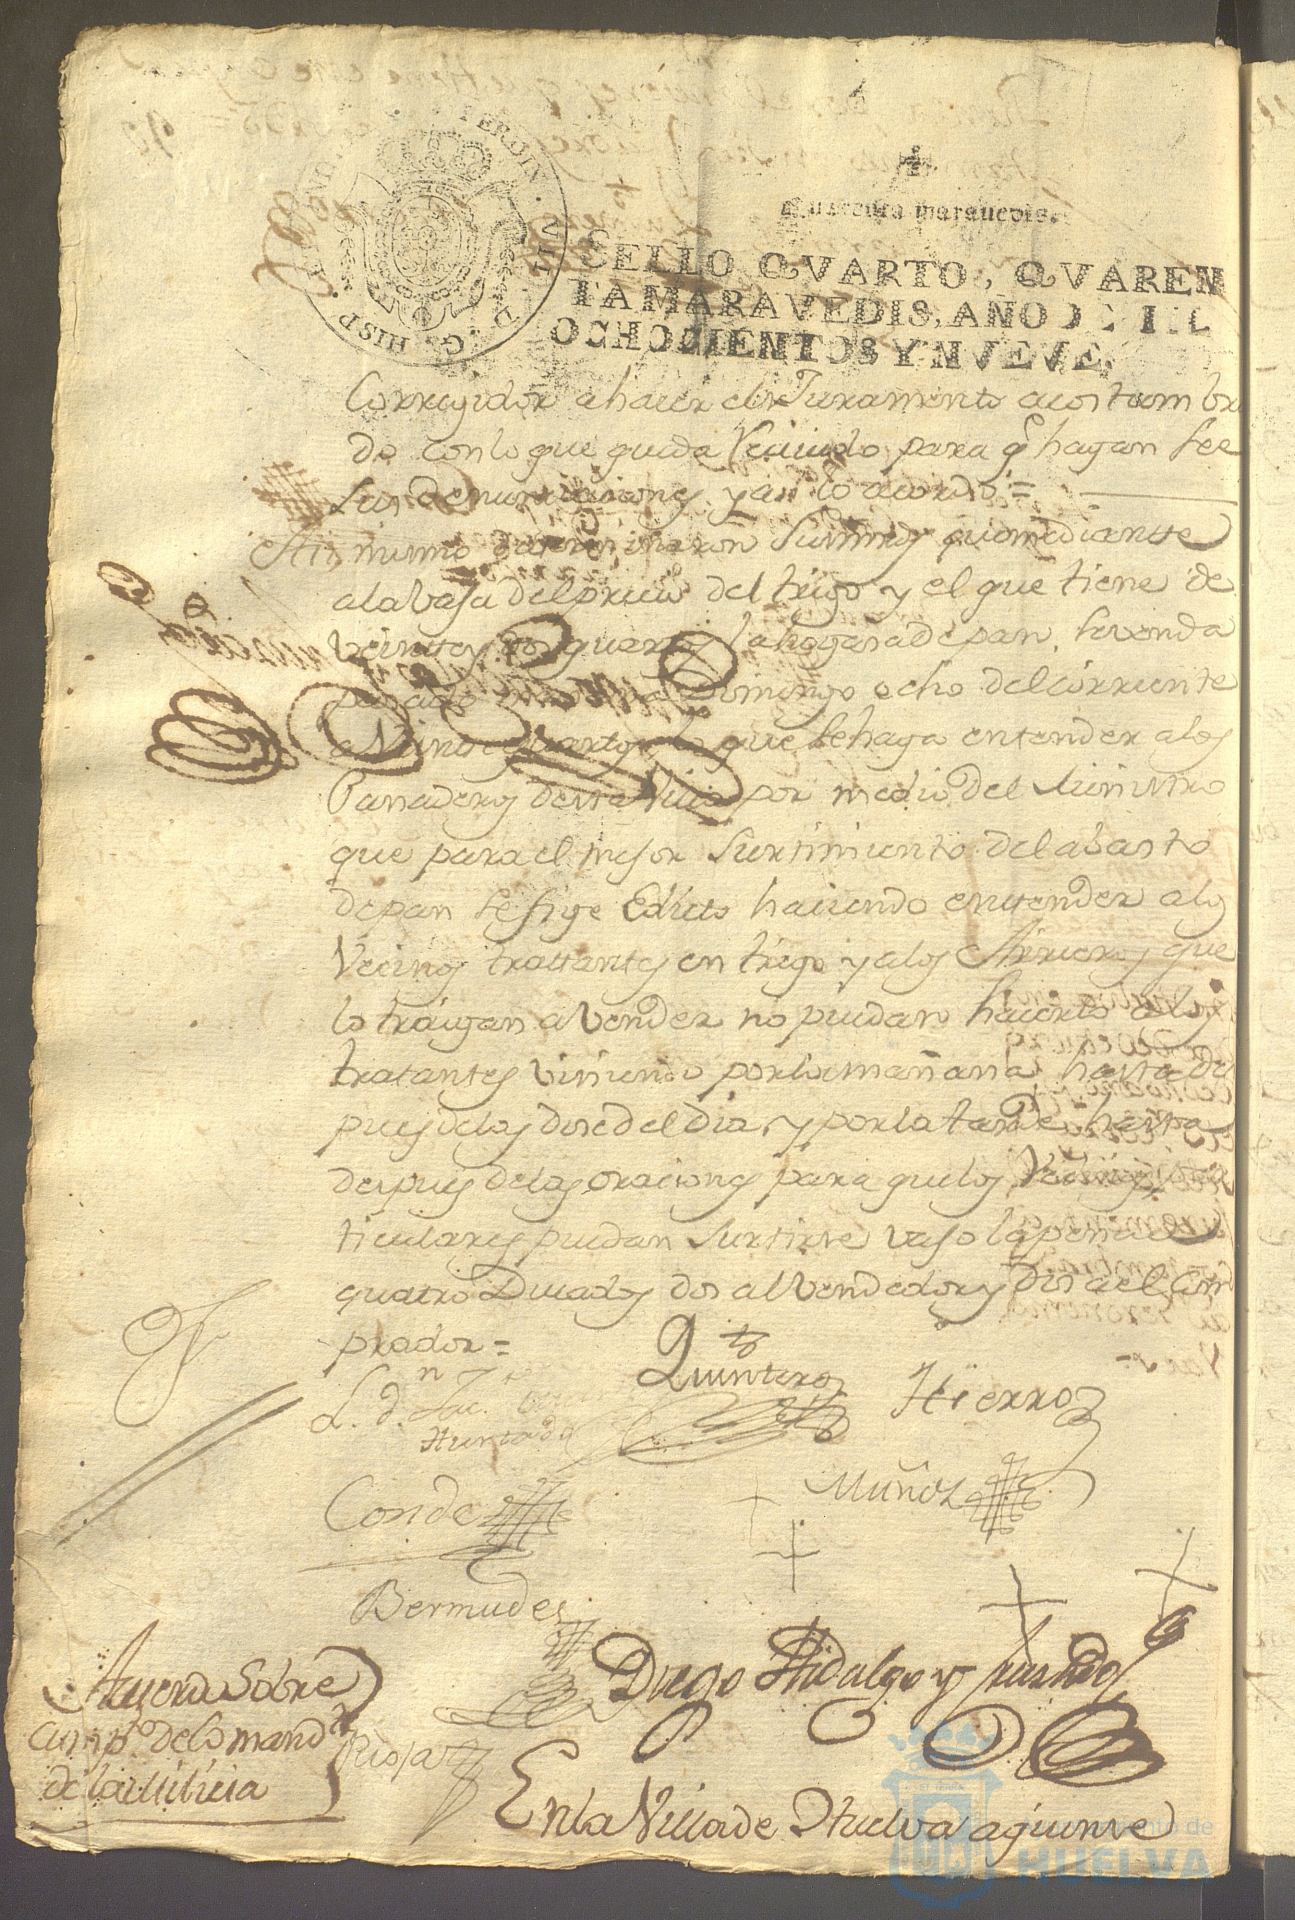 Quarenta maravedis.
SELLO QVARTO, QVAREN
TA MARAVEDIS, AÑO DE MIL
OCHOCIENTOS Y NVEVE.
HISP
Corregidor a hacer el Juramento acostumbra
do con lo que queda Reciuido para q.e hagan fee
sus denunciaciones, y asi lo acordó =
Asi mismo determinaron sus mrds que mediante
a la vaja del precio del trigo y el que tiene de
veinte y dos quartos la hogasa de pan, se venda
Domingo ocho del corriente
a veinte quartos lo que se haga entender a los
Panaderos desta Villa por medio del Ministro
que para el mejor surtimiento del abasto
de pan se fije Edicto haciendo entender a los
Vecinos trattantes en trigo y a los Arrieros que
lo traigan a vender no puedan hacerlo a los
tratantes viniendo por la mañana hasta des
pues de las dose del dia, y por la tarde hasta
despues de las oraciones para que los Vecinos par
ticulares puedan surtirse vajo la pena de
quatro Ducados dos al vendedor y dos a el Com
prador =
L.do
Hurtado
Quintero
Hierro
Conde
Muñoz
Bermudes
Diego Hidalgo y
Rioja
Acuerdo Sobre
cump.to de lo mand.do
de la Milicia
En la Villa de Huelva a quinse
Ayuntamiento de
HUELVA